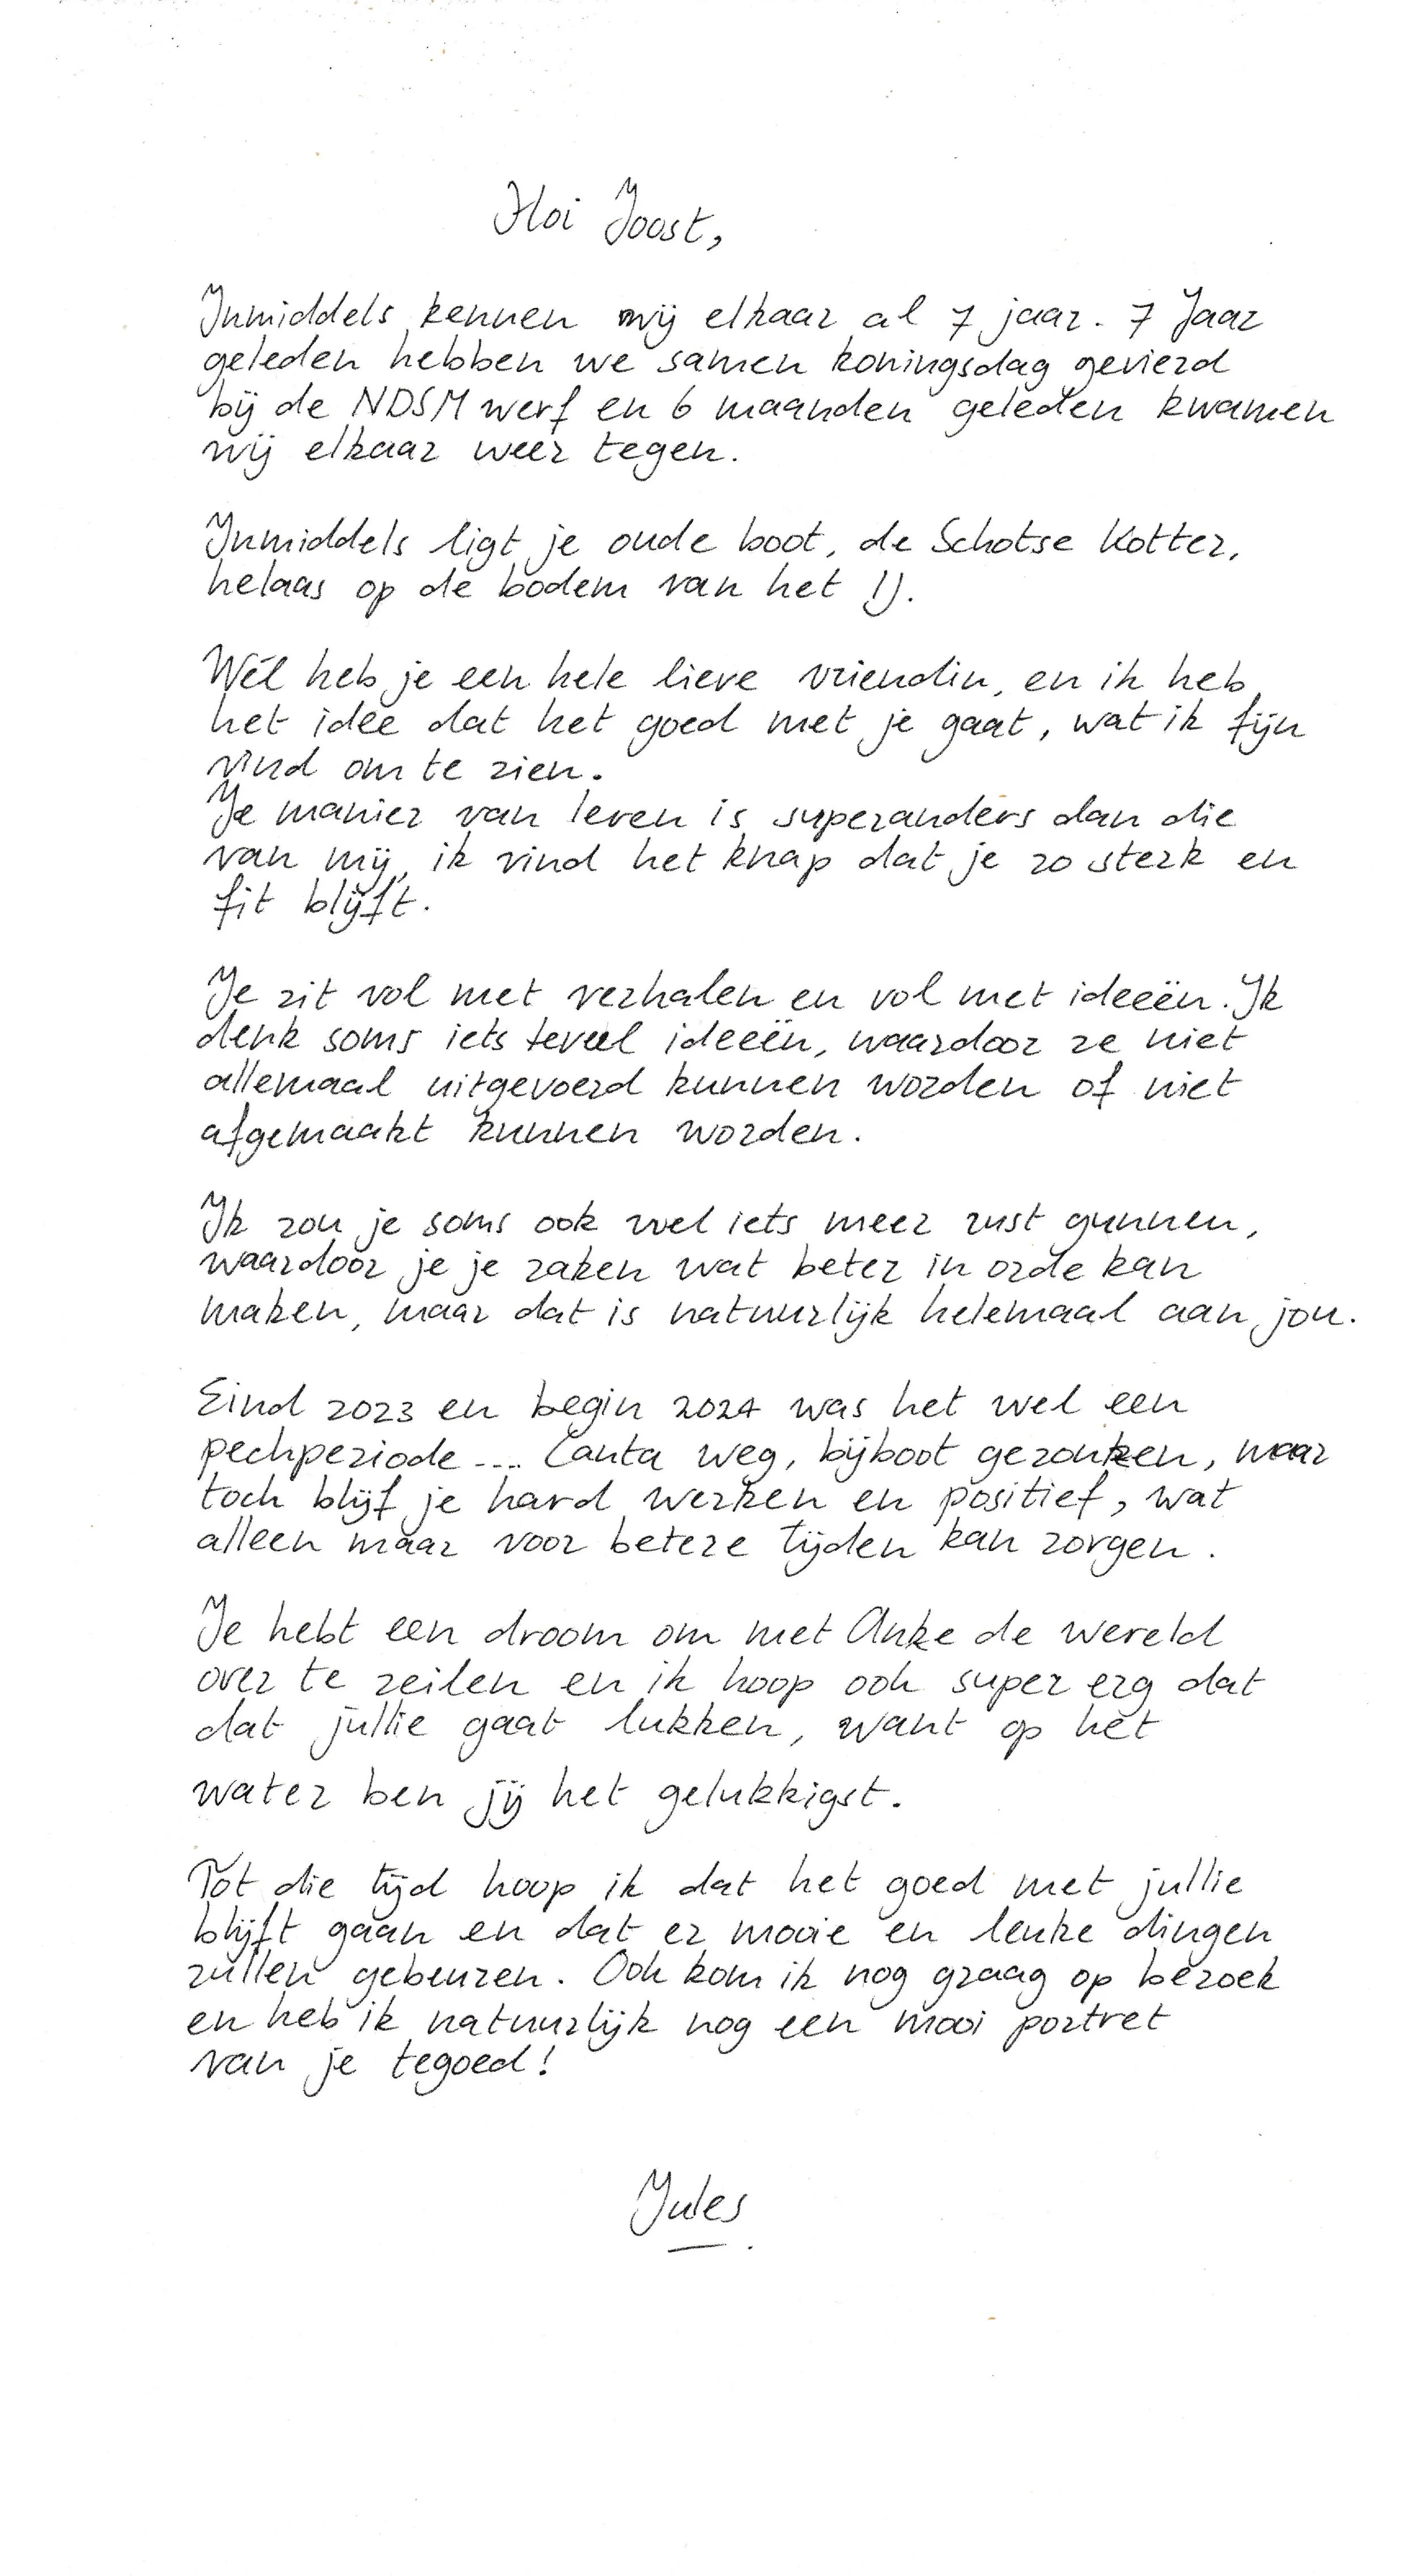 Hoi Joost,
Inmiddels kennen wij elkaar al 7 jaar. 7 Jaar
geleden hebben we samen koningsdag gevierd
bij de NDSM werf en 6 maanden geleden kwamen
wij elkaar weer tegen.
Inmiddels ligt je oude boot, de Schotse Kotter,
helaas op de bodem van het IJ.
Wél heb je een hele lieve vriendin, en ik heb
het idee dat het goed met je gaat, wat ik fijn
vind om te zien.
Je manier van leven is superanders dan die
van mij, ik vind het knap dat je zo sterk en
fit blijft.
Je zit vol met verhalen en vol met ideeën. Ik
denk soms iets teveel ideeën, waardoor ze niet
allemaal uitgevoerd kunnen worden of niet
afgemaakt kunnen worden.
Ik zou je soms ook wel iets meer rust gunnen,
waardoor je je zaken wat beter in orde kan
maken, maar dat is natuurlijk helemaal aan jou.
Eind 2023 en begin 2024 was het wel een
pechperiode.... Canta weg, bijboot gezonken, maar
toch blijf je hard werken en positief, wat
alleen maar voor betere tijden kan zorgen.
Je hebt een droom om met Anke de wereld
over te zeilen en ik hoop ook super erg dat
dat jullie gaat lukken, want op het
water ben jij het gelukkigst.
Tot die tijd hoop ik dat het goed met jullie
blijft gaan en dat er mooie en leuke dingen
zullen gebeuren. Ook kom ik nog graag op bezoek
en heb ik natuurlijk nog een mooi portret
van je tegoed!
Jules